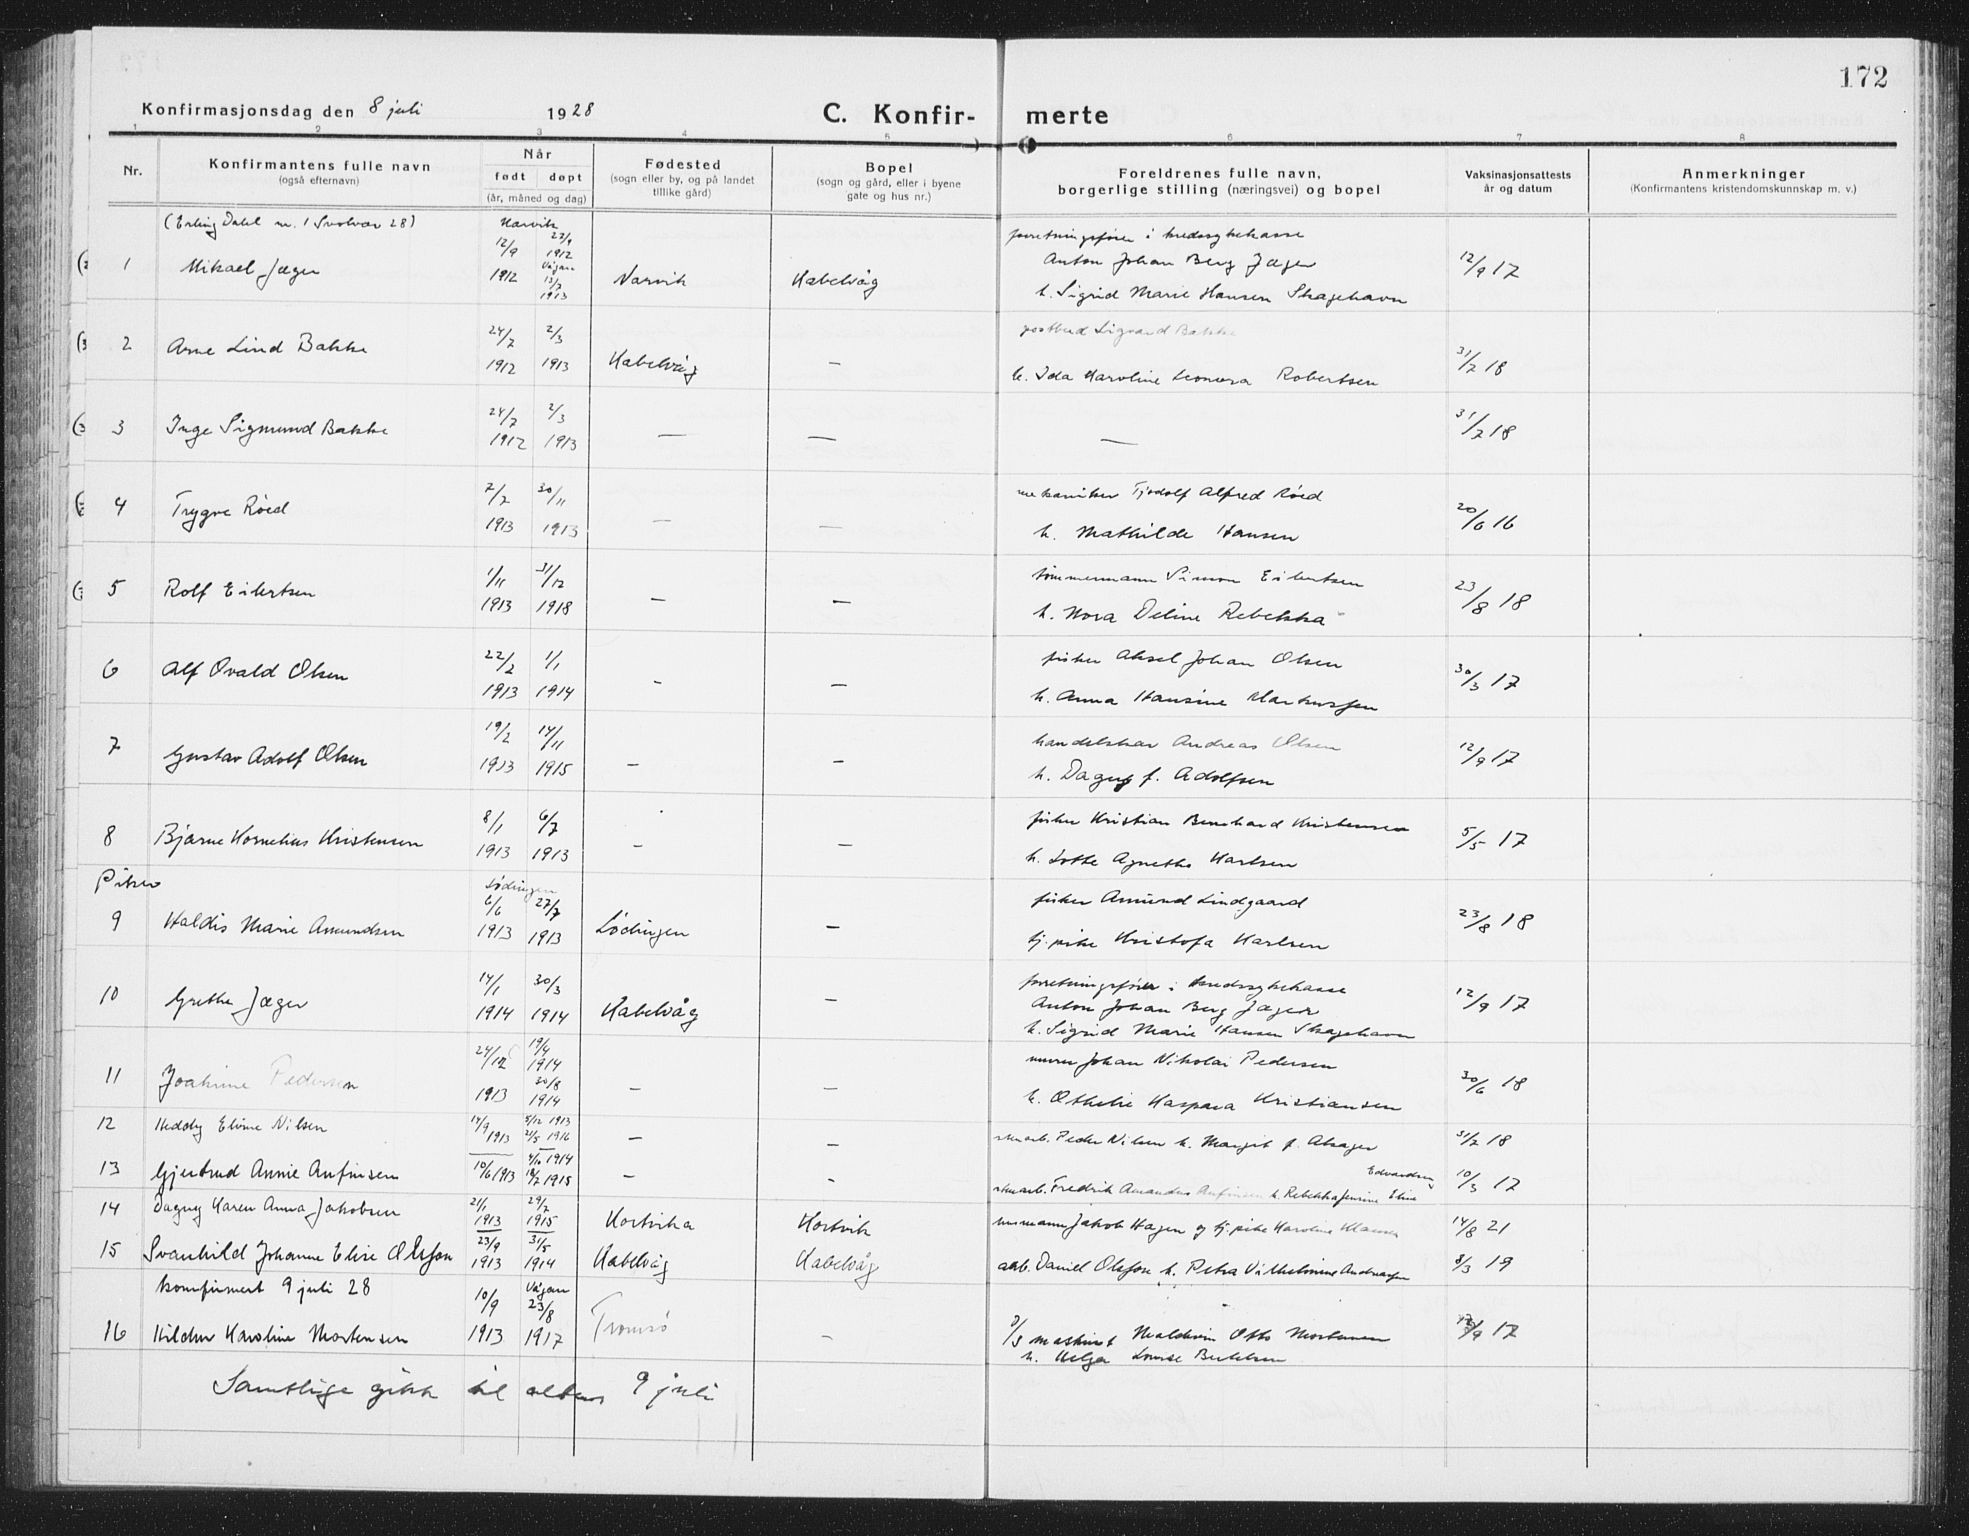 172
Konfirmasjonsdag den 8 juli 1928 C. Konfir- merte
1 2 3 4 5 6 7 8
Nr.
Konfirmantens fulle navn
(også efternavn)
Når
født døpt
(år, måned og dag)
Fødested
(sogn eller by, og på landet
tillike gård)
Bopel
(sogn og gård, eller i byene
gate og hus nr.)
Foreldrenes fulle navn,
borgerlige stilling (næringsvei) og bopel
Vaksinasjonsattests
år og datum
Anmerkninger
(Konfirmantens kristendomskunnskap m. v.)
(Erling Dahl nr. 1 Svolvær 28)
1 Mikael Jæger 12/9 1912 Narvik 22/9 1912 Vågan 13/7 1913 Narvik Kabelvåg
forretningsfører i kredssykekasse
Anton Johan Berg Jæger
h. Sigrid Marie Hansen Skagehavn 12/9 17
2 Arne Lind Bakke 24/7 1912 2/3 1913 Kabelvåg —
postbud Sigvard Bakke
h. Ida Karoline Leonora Robertsen 31/7 18
3 Inge Sigmund Bakke 24/7 1912 2/3 1913 — — — 31/7 18
4 Trygve Röed 7/7 1913 30/11 1913 — —
mekaniker Tjodolf Alfred Röed
h. Mathilde Hansen 20/6 16
5 Rolf Eilertsen 1/11 1913 31/12 1918 — —
tömmermann Simon Eilertsen
h. Nora Deline Rebekka 23/8 18
6 Alf Ovald Olsen 22/2 1913 1/1 1914 — —
fisker Aksel Johan Olsen
h. Anna Hansine Markussen 30/3 17
7 Gustav Adolf Olsen 19/2 1913 14/11 1915 — —
handelskar Andreas Olsen
h. Dagny f. Adolfsen 12/9 17
8 Bjarne Kornelius Kristensen 8/1 1913 6/7 1913 — —
fisker Kristian Bernhard Kristensen
h. Lotte Agnethe Karlsen 5/5 17
Piker
9 Haldis Marie Amundsen Lödingen 6/6 1913 27/7 1913 Lödingen —
fisker Amund Lindgaard
tj. pike Kristofa Karlsen 23/8 18
10 Grethe Jæger 14/1 1914 30/3 1914 Kabelvåg —
forretningsfører i kredssykekasse
Anton Johan Berg Jæger
h. Sigrid Marie Hansen Skagehavn 12/9 17
11 Joakime Pedersen 24/12 1913 19/4 1914 30/8 1914 — —
murer Johan Nikolai Pedersen
h. Othelie Kaspara Kristiansen 30/6 18
12 Heddy Elvine Nilsen 14/9 1913 5/12 1913 21/5 1916 — —
Peder Nilsen h. Margit f. 31/7 18
13 Gjertrud Annie Anfinsen 10/6 1913 4/10 1914 18/7 1915 — -
Fredrik Amandus Anfinsen h. Rebekka Jensine Eline Edvardsen 10/3 17
14 Dagny Karen Anna Jakobsen 21/1 1913 29/7 1915 Hortvika Hortvik
Jakob Hagen og tj. pike Karoline 14/8 21
15 Svanhild Johanne Elise Olsson 23/9 1913 31/5 1914 Kabelvåg Kabelvåg
arb. Daniel Olsson h. Petra Vilhelmine Andreassen 8/3 19
konfirmert 9 juli 28
16 Hildur Karoline Mortensen 10/9 1913 Vågan 23/8 1917 Tromsö —
maskinist Waldemar Otto Mortensen
h. Helga Lovise Bertelsen 17
Samtlige gikk til alters 9 juli